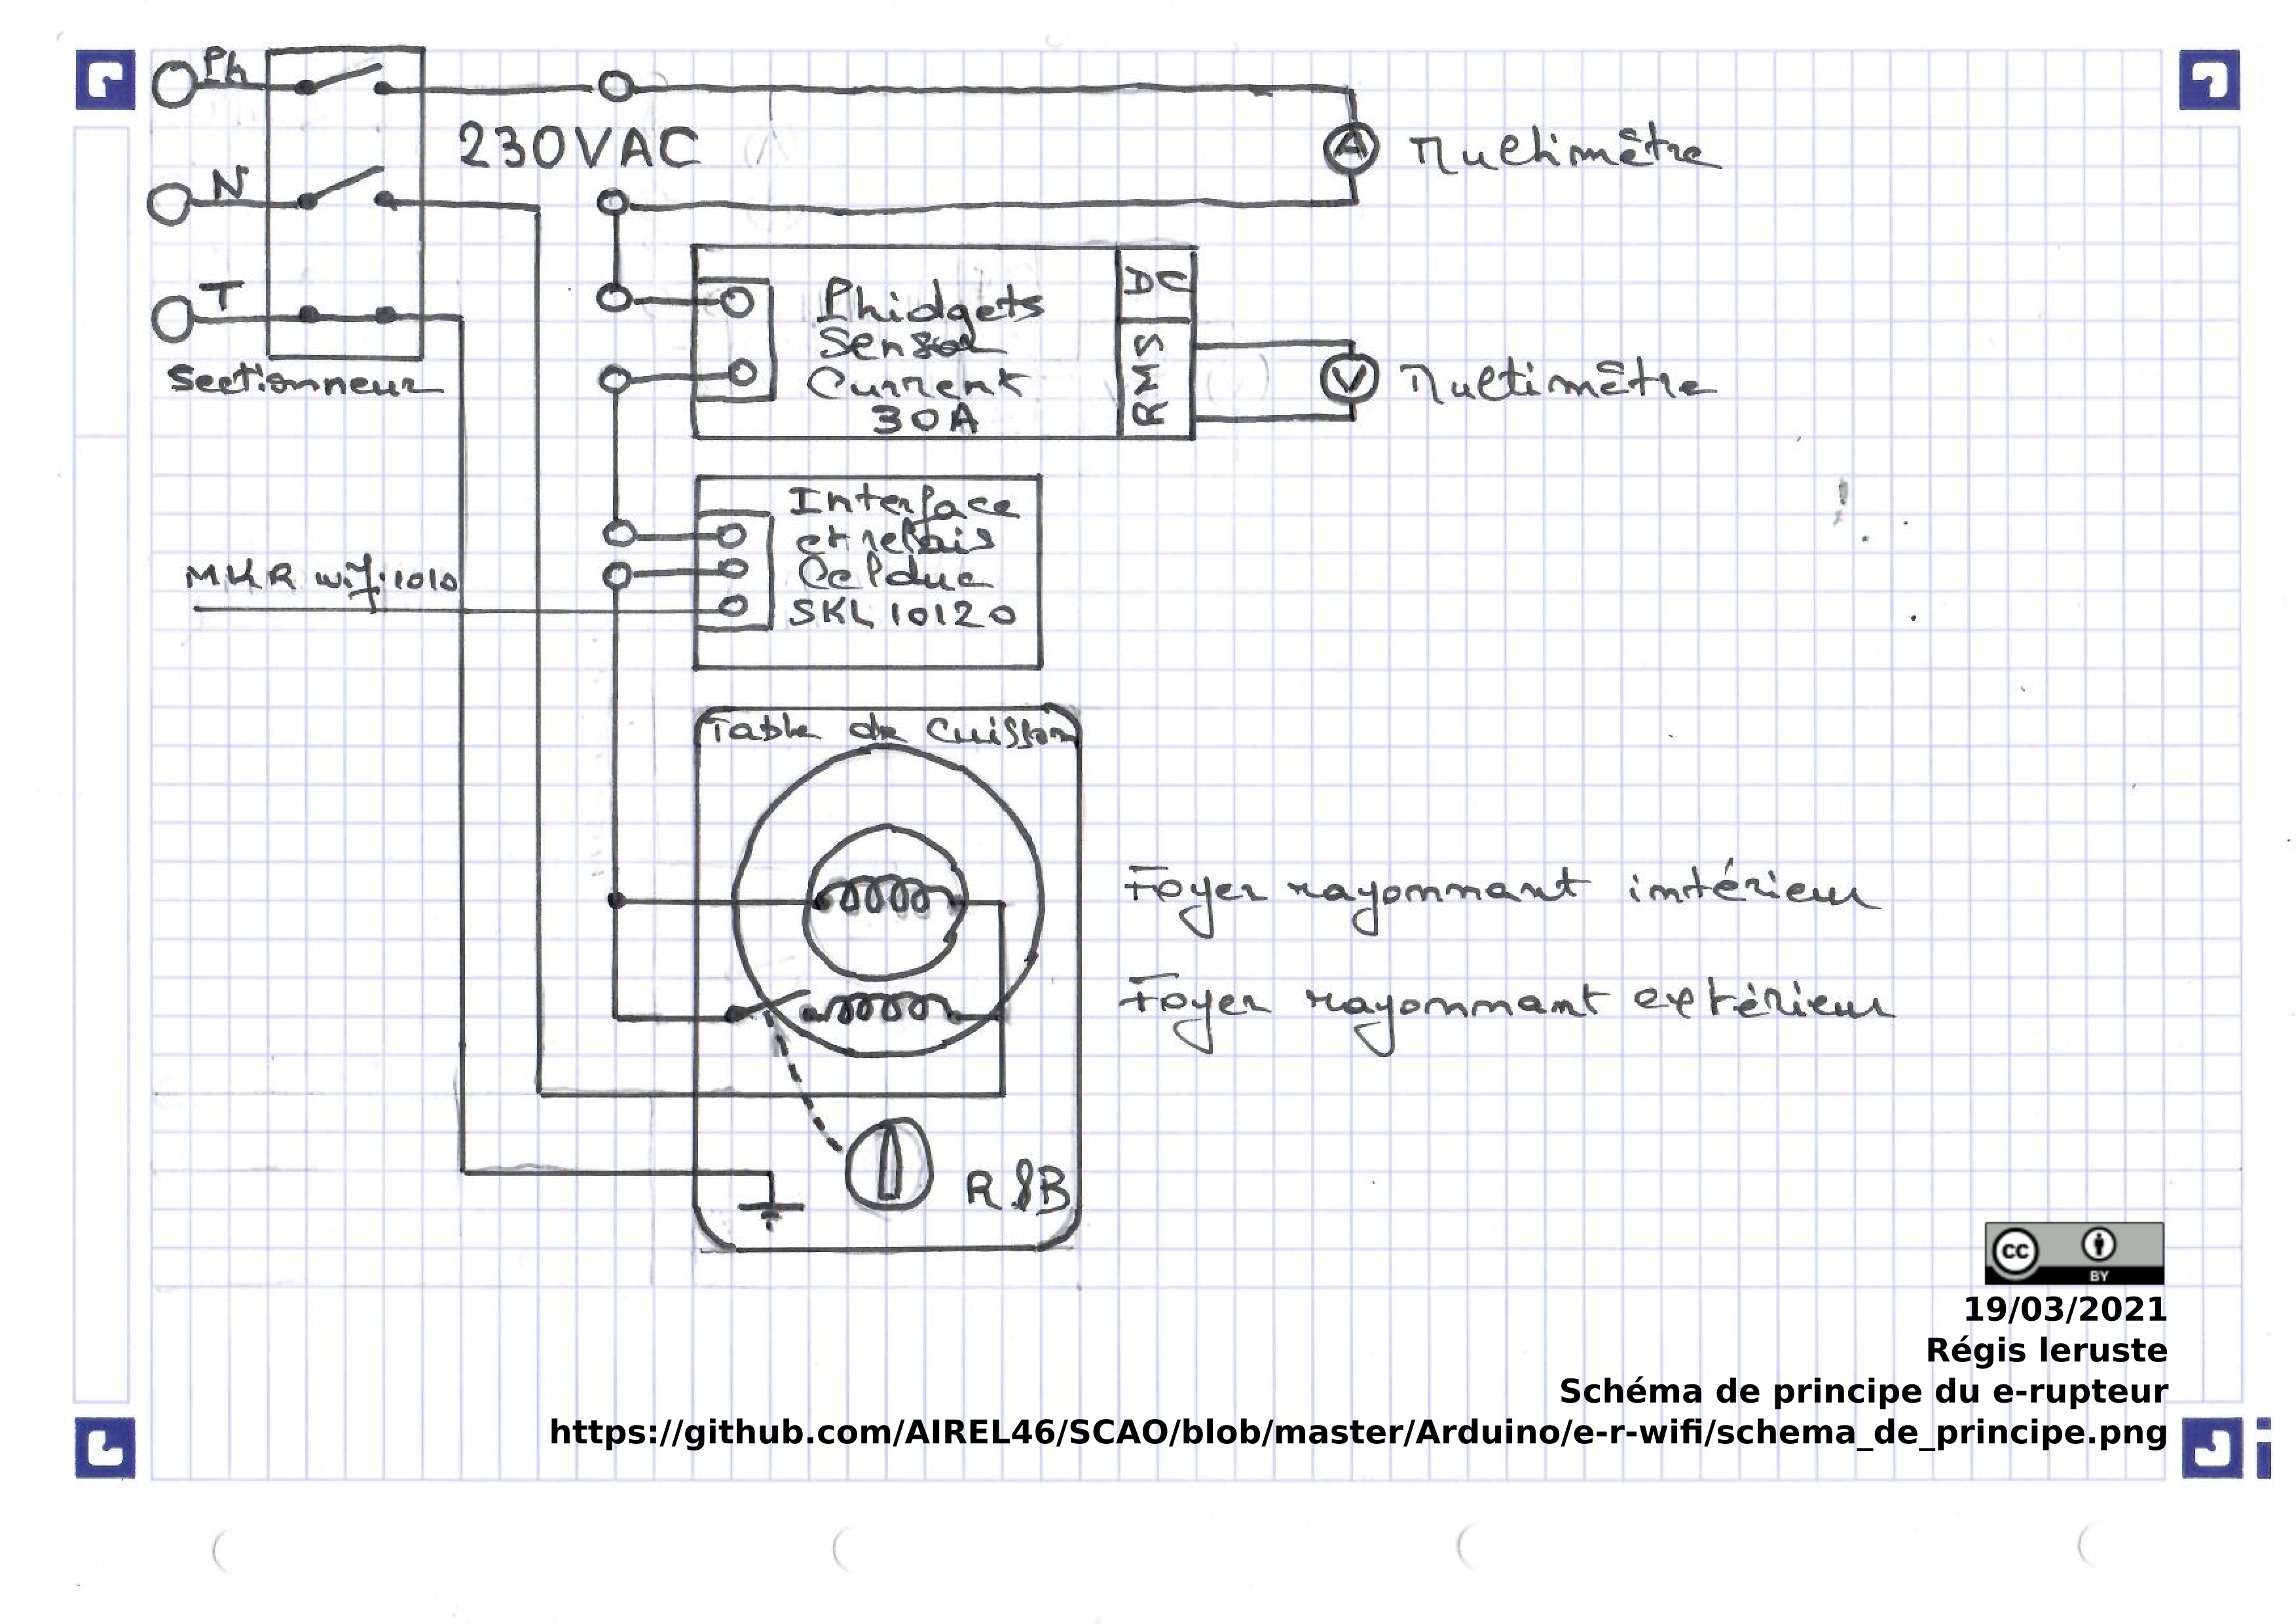 Ph
230VAC
A
Multimètre
N
T
Sectionneur
Phidgets
Sensor
Current
30A
DC
RMS
V
Multimètre
Interface
et relais
Celduc
SKL10120
MKR wifi 1010
Table de Cuisson
Foyer rayonnant intérieur
Foyer rayonnant extérieur
cc
BY
19/03/2021
Régis leruste
Schéma de principe du e-rupteur
https://github.com/AIREL46/SCAO/blob/master/Arduino/e-r-wifi/schema_de_principe.png